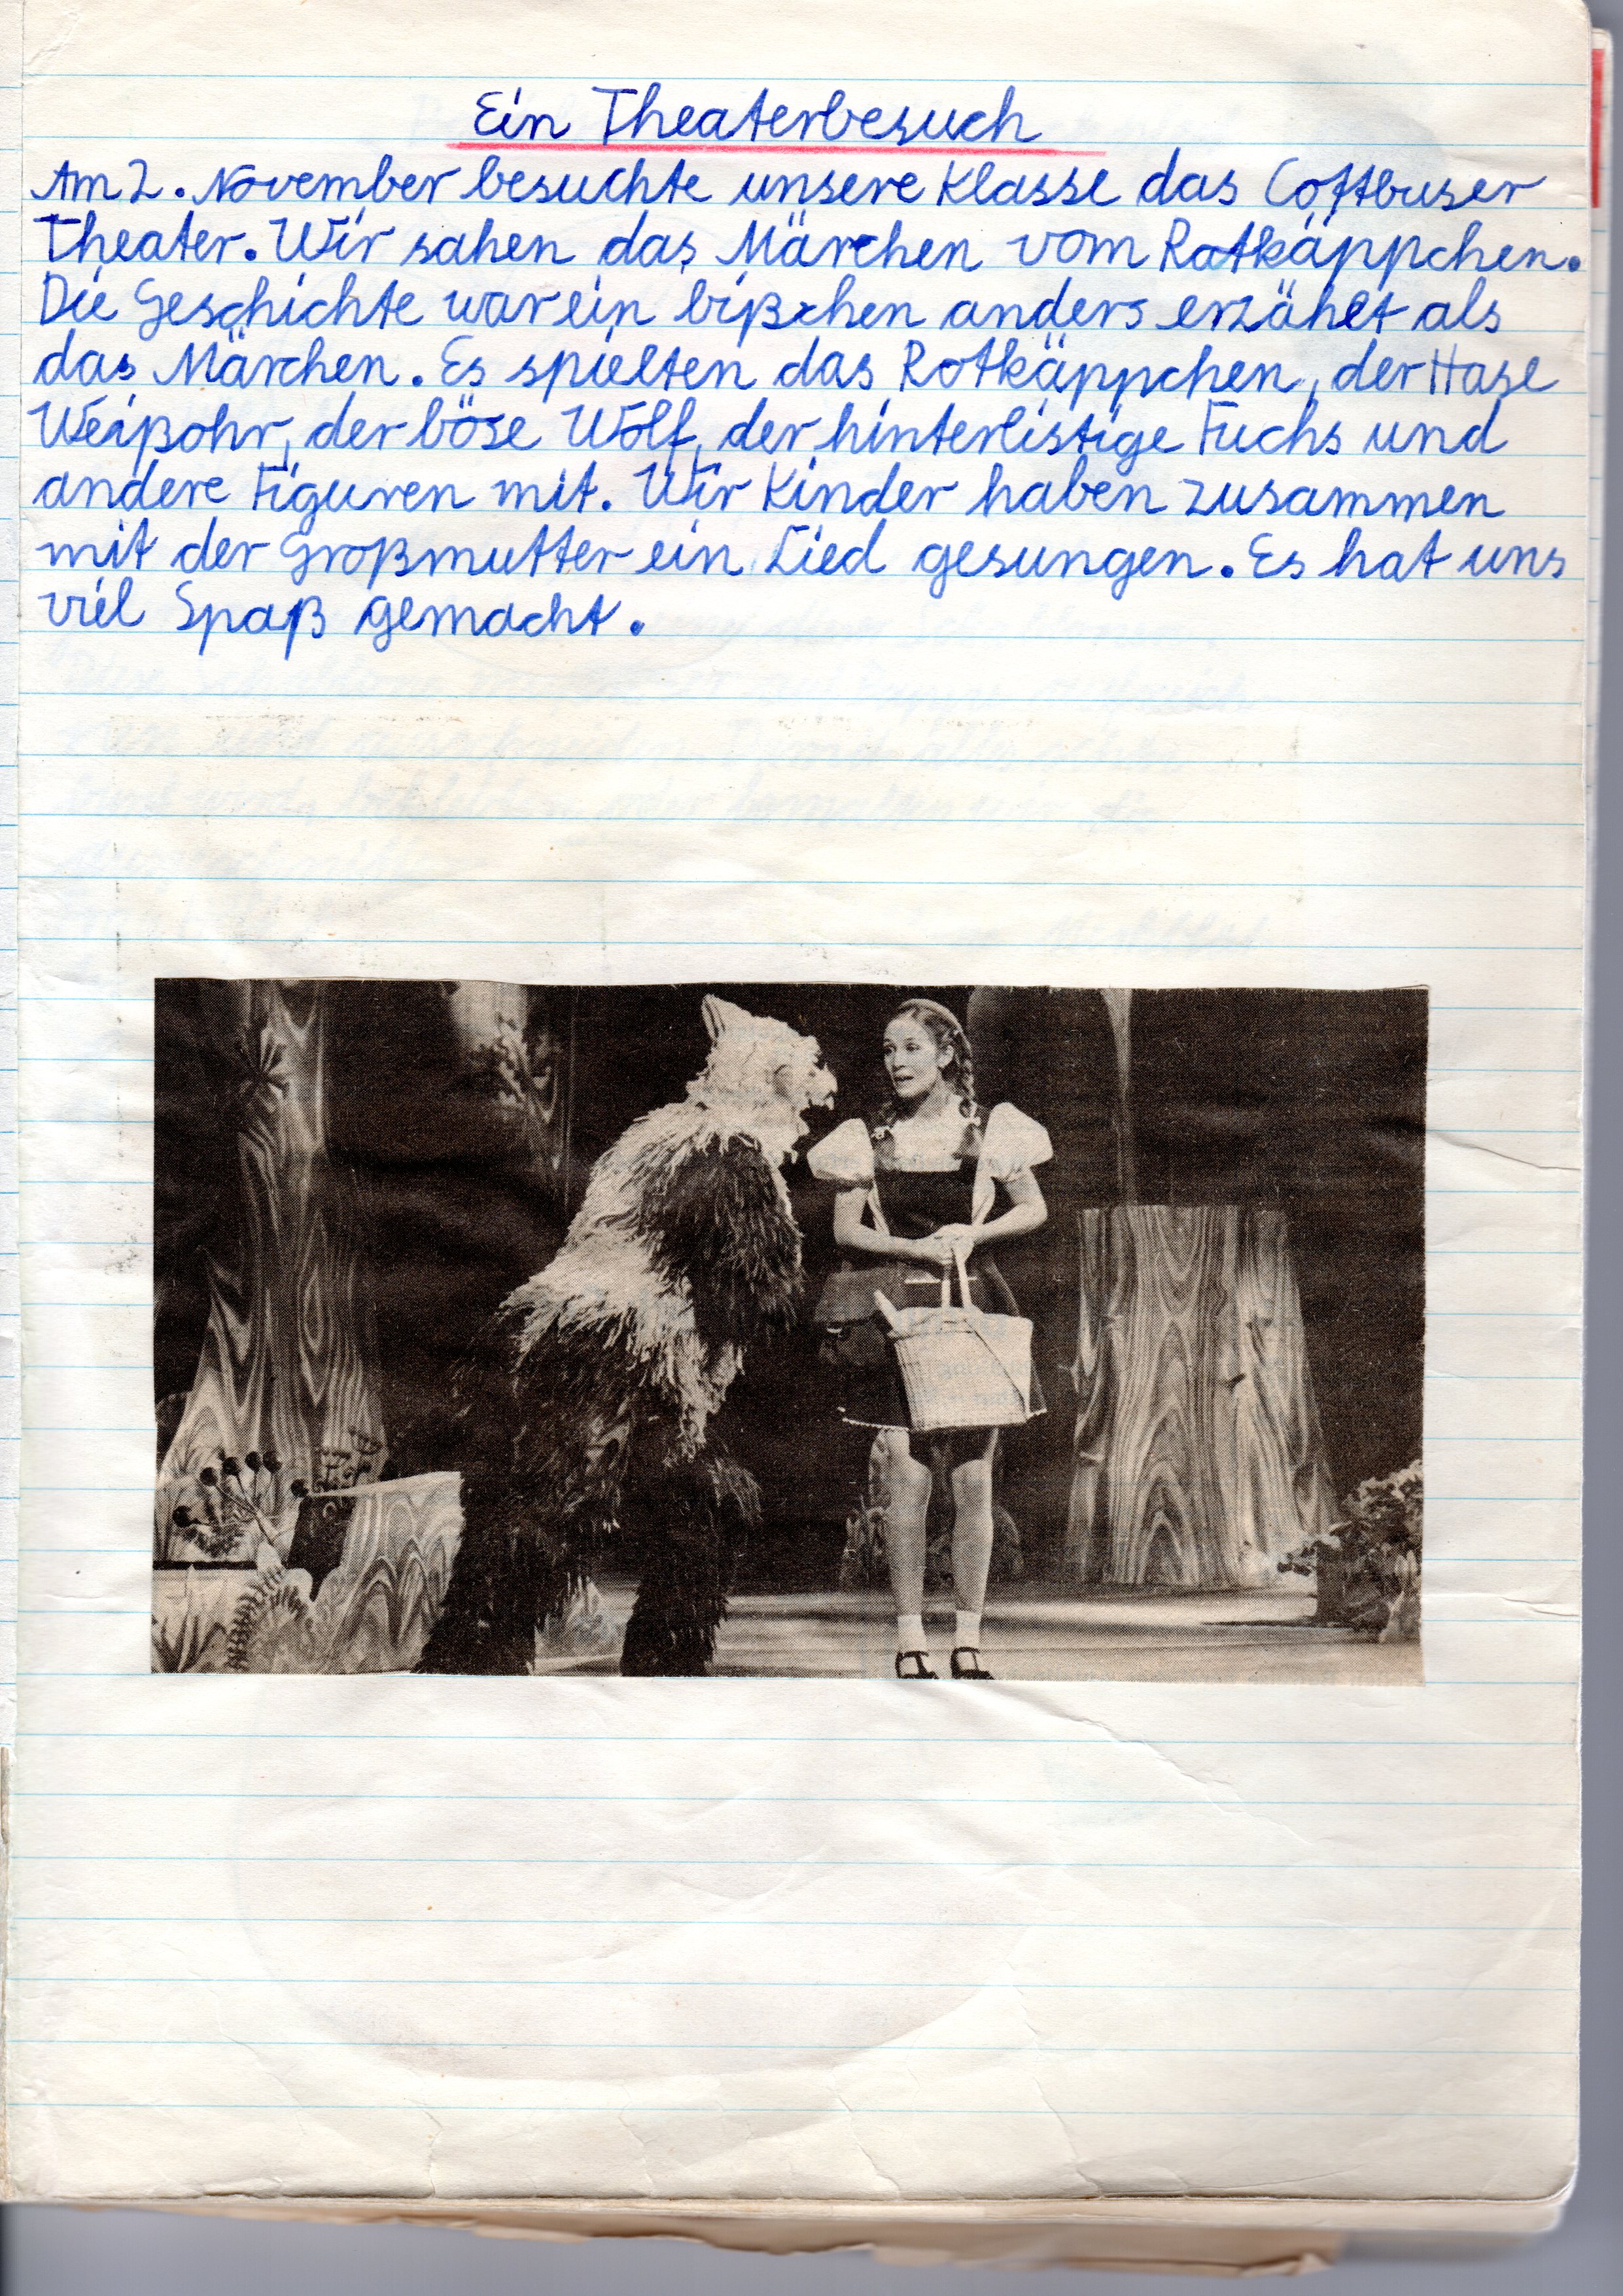 Ein Theaterbesuch
Am 2. November besuchte unsere Klasse das Cottbuser
Theater. Wir sahen das Märchen vom Rotkäppchen.
Die Geschichte war ein bißchen anders erzählt als
das Märchen. Es spielten das Rotkäppchen, der Hase
Weißohr, der böse Wolf, der hinterlistige Fuchs und
andere Figuren mit. Wir Kinder haben zusammen
mit der Großmutter ein Lied gesungen. Es hat uns
viel Spaß gemacht.